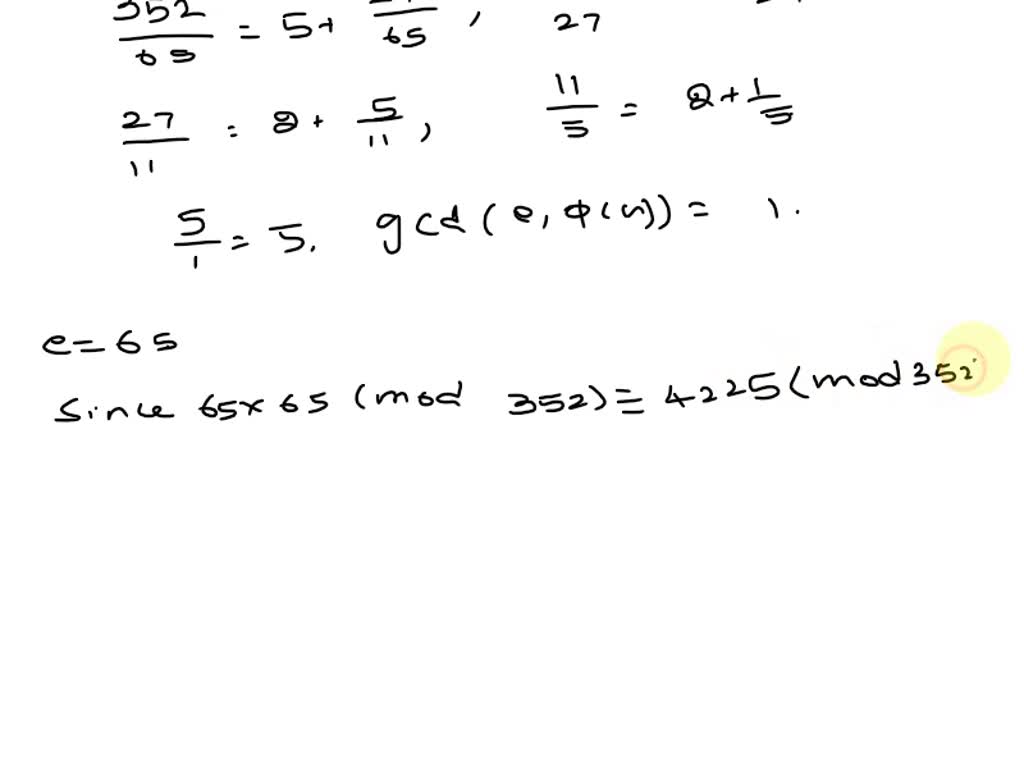 352/65 = 5+ /65 , 27
27/11 = 2 + 5/11 , 11/5 = 2 + 1/5
5/1 = 5. gcd(e, φ(n)) = 1.
e = 65
Since 65×65 (mod 352) ≡ 4225 (mod 352